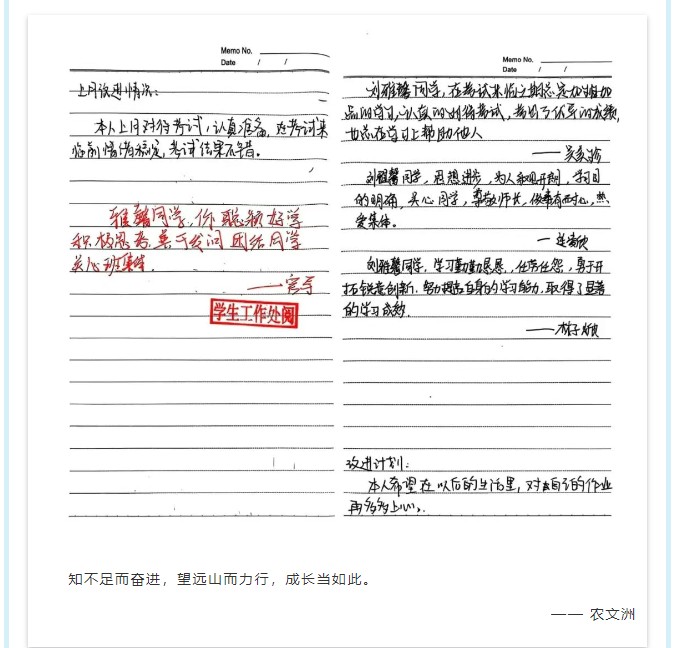 Memo No.
Date / /
上月改进情况:
本人上月对待考试,认真准备,在考试来
临前情绪稳定,考试结果不错。
雅馨同学,你聪颖好学
积极思考 善于发问 团结同学
关心班集体.
学生工作处阅
Memo No.
Date / /
刘雅馨同学,在考试来临之期总是加倍加
的学习,认真的对待考试,考出了优异的成绩,
也总在学习上帮助他人
刘雅馨同学,思想进步,为人乐观开朗,学习目
的明确,关心同学,尊敬师长,做事有耐心,热
爱集体。
刘雅馨同学,学习勤勤恳恳,任劳任怨,勇于开
拓锐意创新,努力提高自身的学习能力,取得了显著
的学习成效.
改进计划:
本人希望在以后的生活里,对自己的作业
再多多上心。
知不足而奋进,望远山而力行,成长当如此。
—— 农文洲